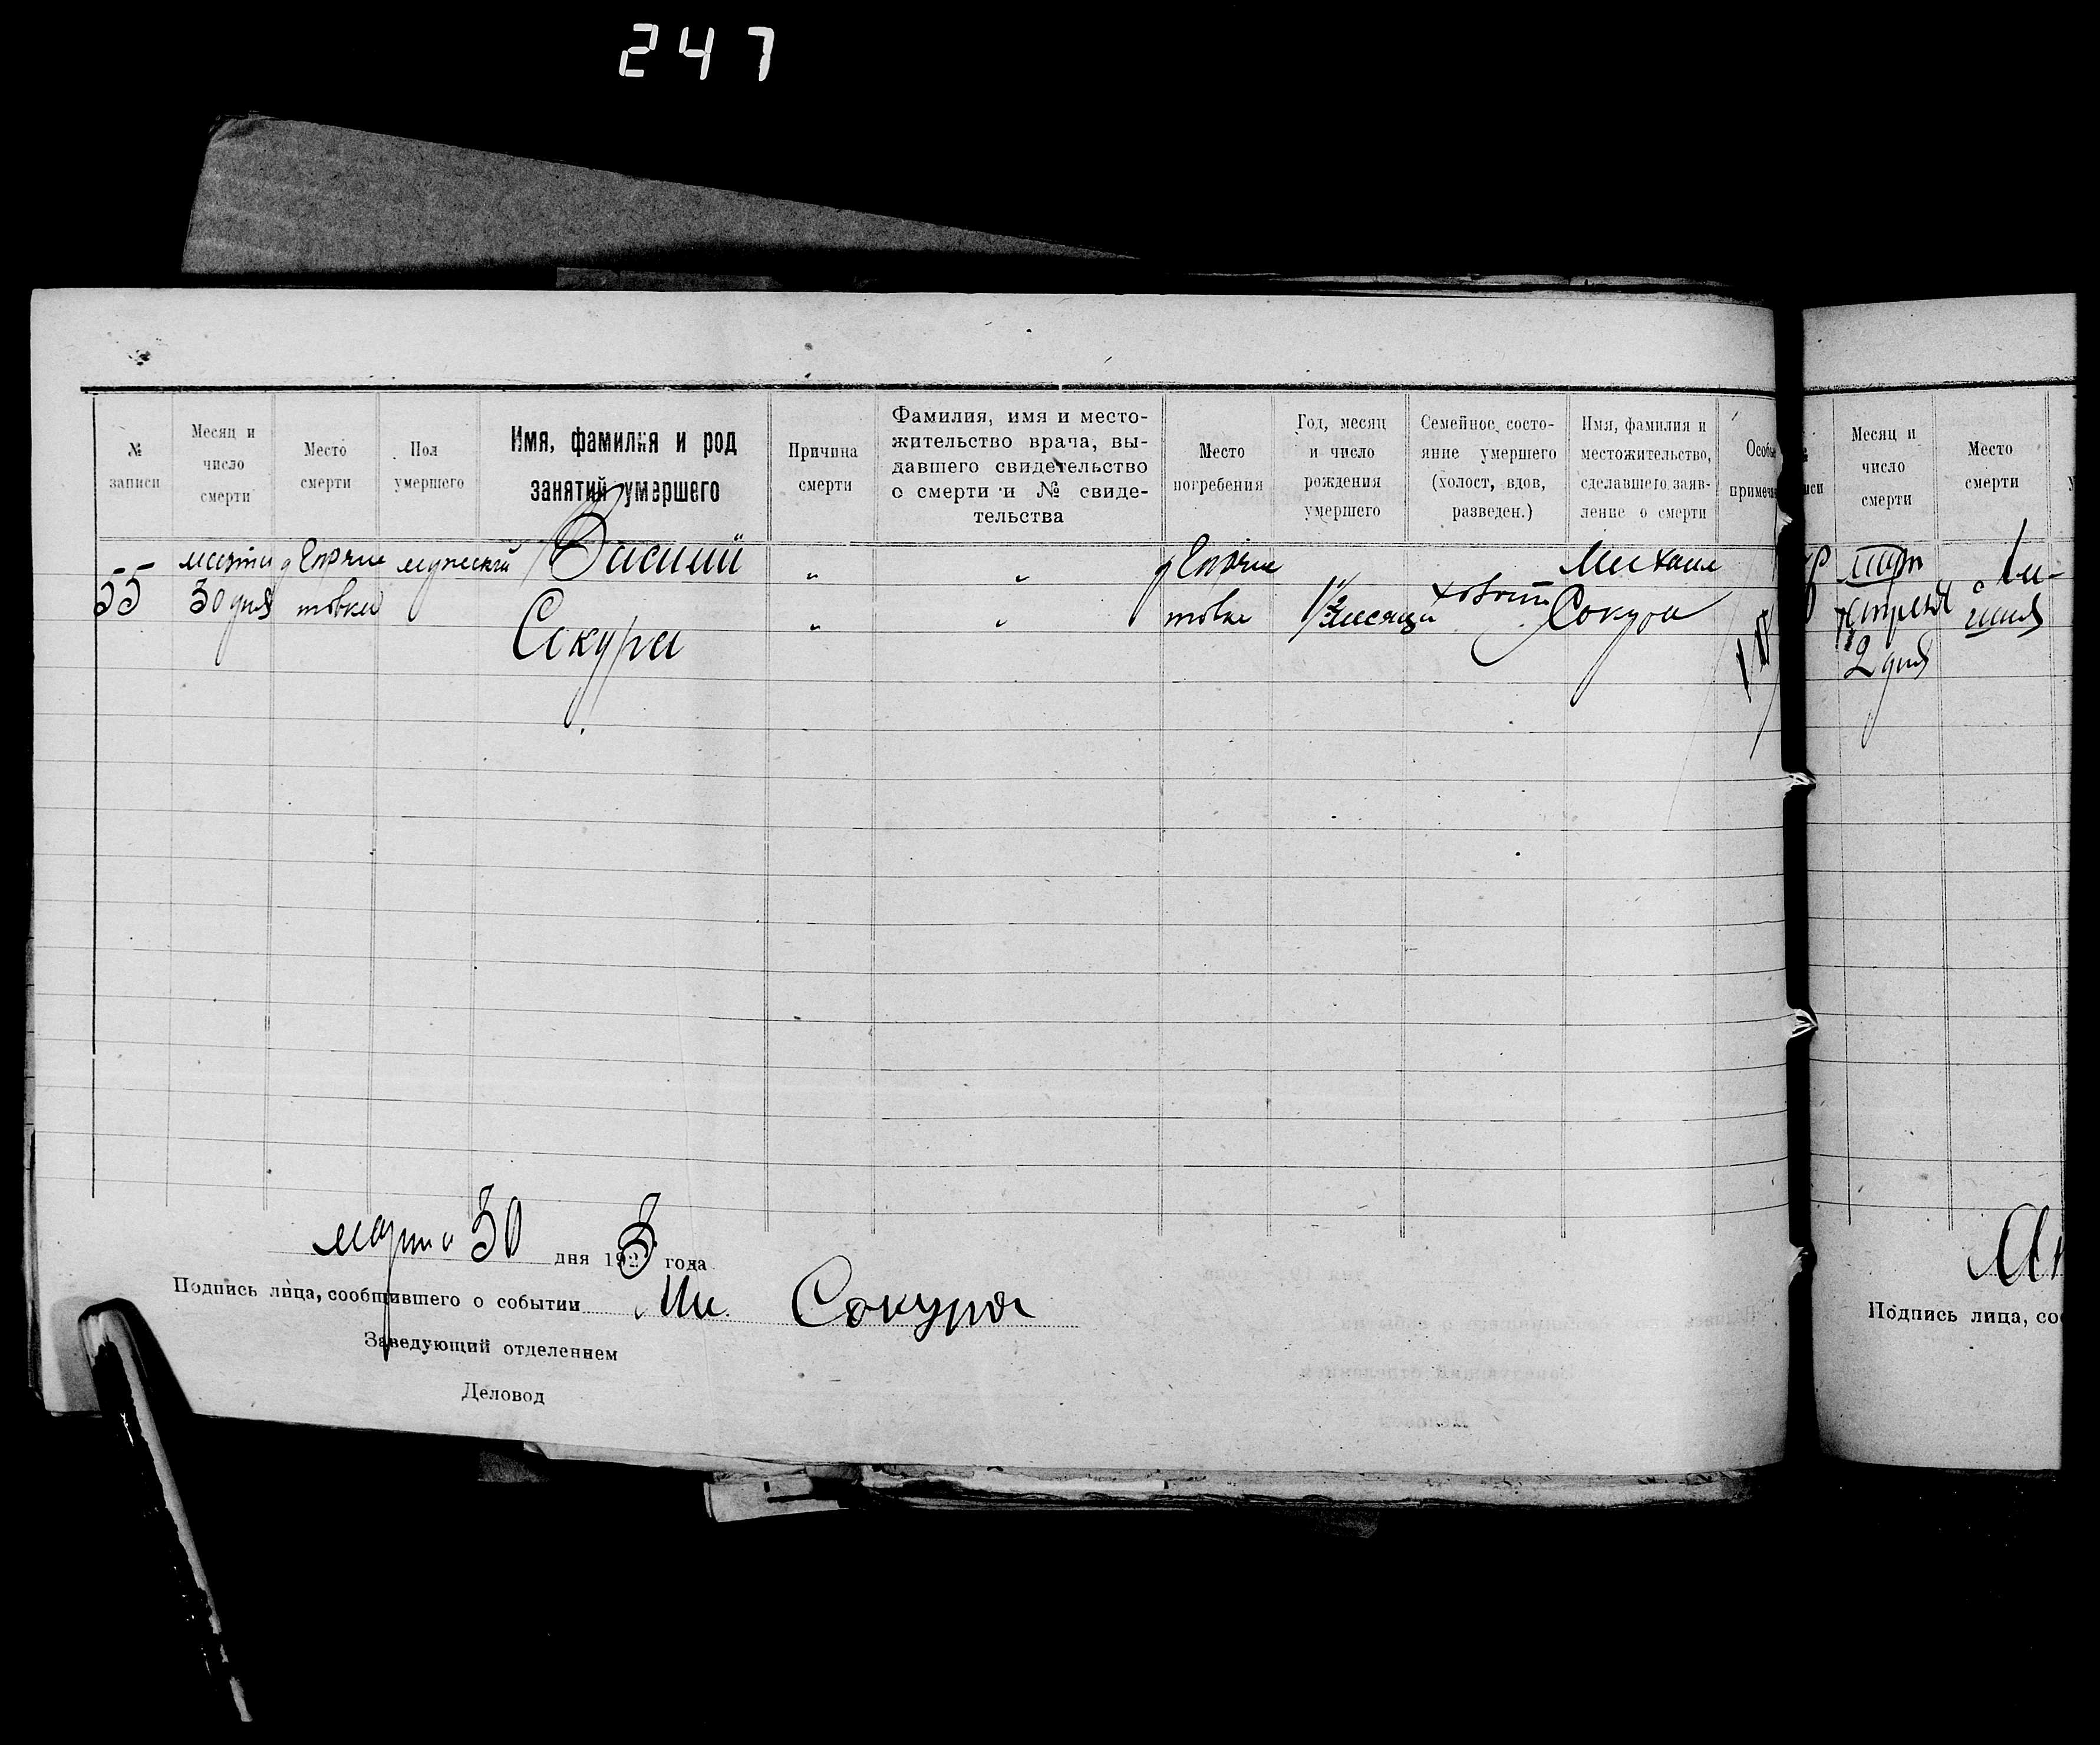 247
№ записи
Месяц и число смерти
Место смерти
Пол умершего
Имя, фамилия и род занятий умершего
Причина смерти
Фамилия, имя и место-
жительство врача, вы-
давшего свидетельство
о смерти и № свиде-
тельства
Место погребения
Год, месяц и число рождения умершего
Семейное состо-
яние умершего
(холост, вдов,
разведен.)
Имя, фамилия и
местожительство,
сделавшего заяв-
ление о смерти
55
марта
30 дня
мужеский
Сакура
"
"
"
"
месяца
холостой
Михаил
Сокура
марта 30 дня 1923 года
Подпись лица, сообщившего о событии Ми Сокура
Заведующий отделением
Деловод
Месяц и число смерти
Место смерти
2 дня
Подпись лица, со